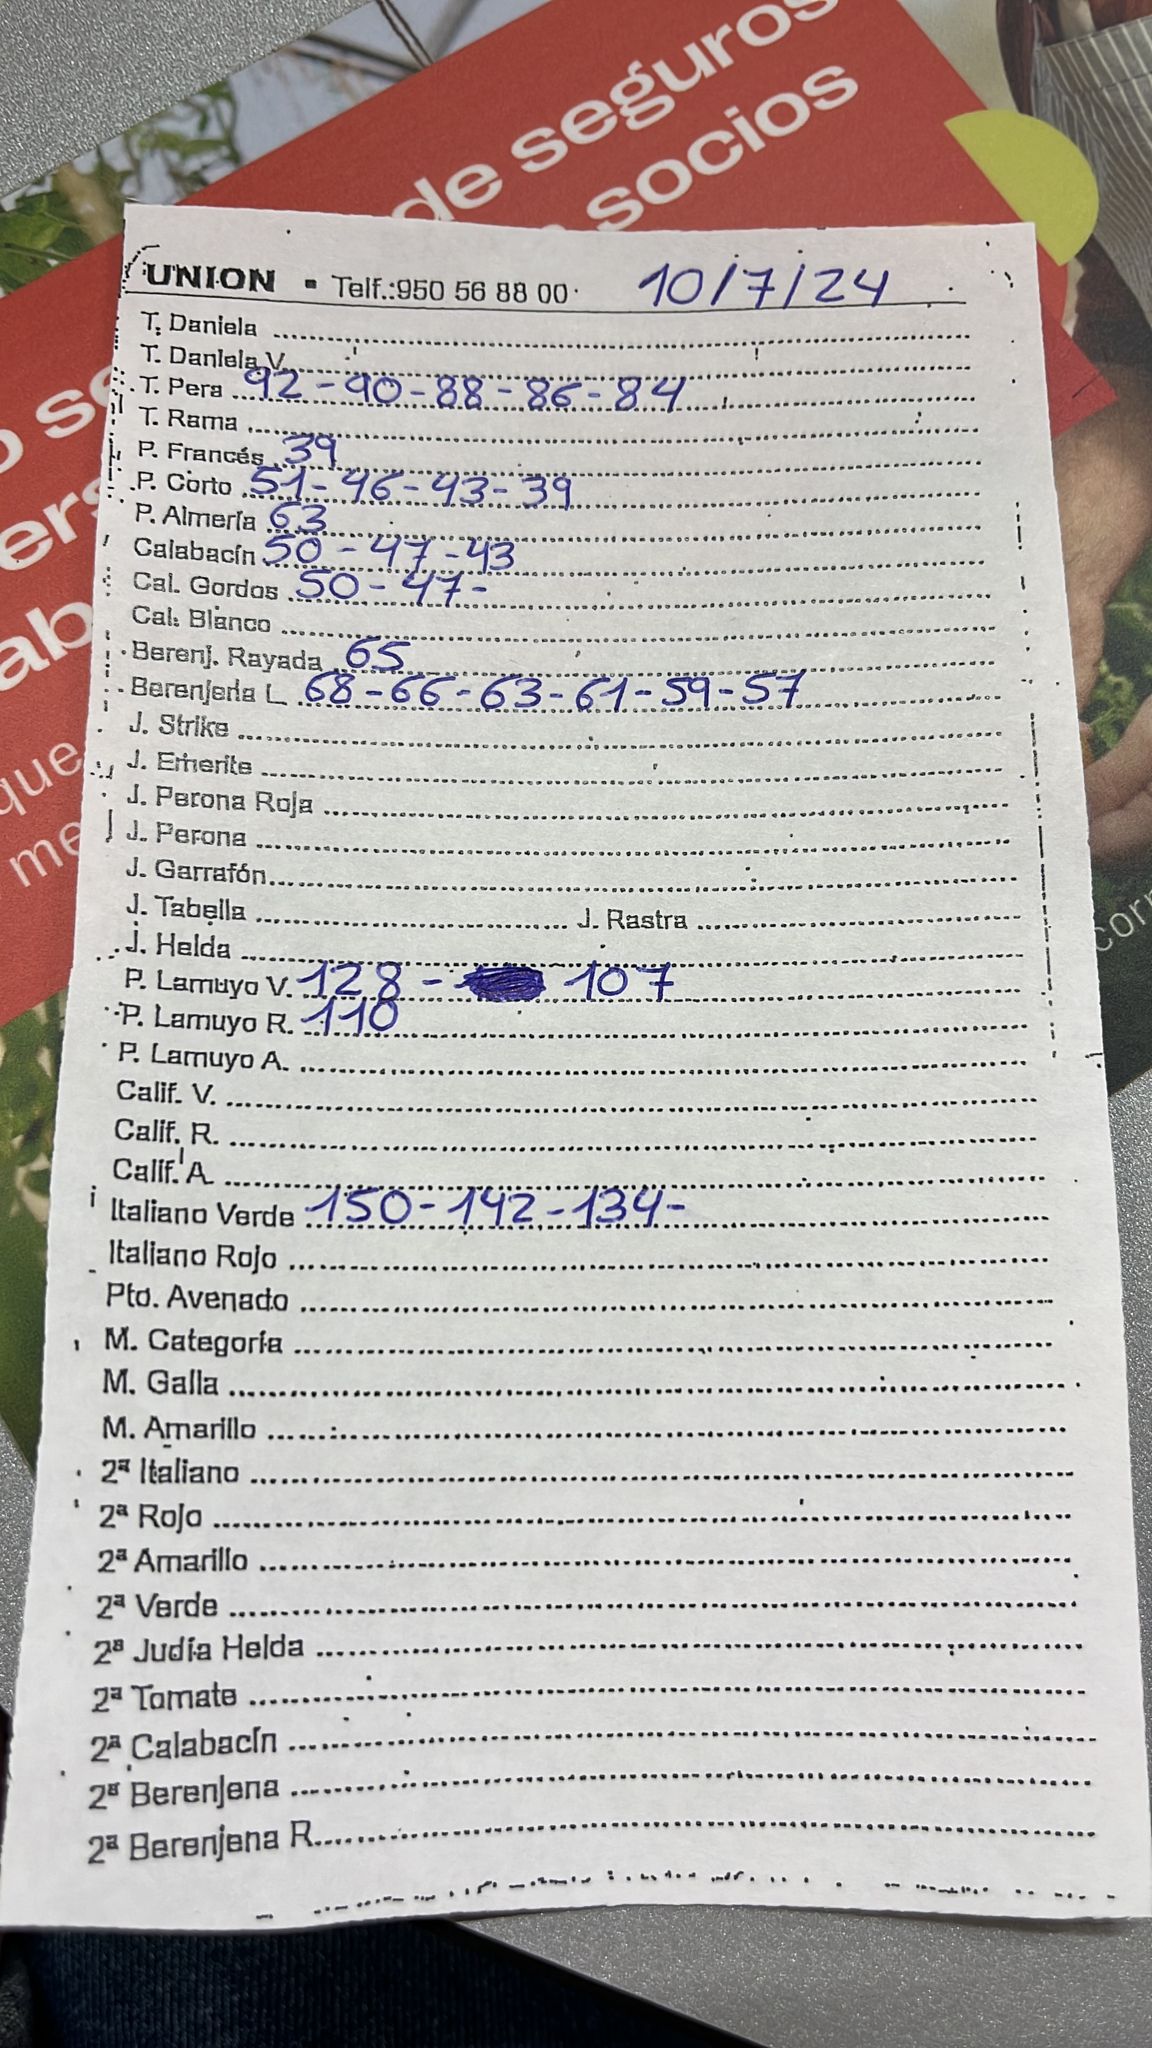 de seguros
socios
UNION • Telf.:950 56 88 00 10/7/24
T. Daniela
T. Daniela V.
T. Pera 92-90-88-86-84
T. Rama
P. Francés 39
P. Corto 51-46-43-39
P. Almería 63
Calabacín 50-47-43
Cal. Gordos 50-47-
Cal. Blanco
Berenj. Rayada 65
Berenjena L. 68-66-63-61-59-57
J. Strike
J. Emerite
J. Perona Roja
J. Perona
J. Garrafón
J. Tabella J. Rastra
J. Helda
P. Lamuyo V. 128 - 107
P. Lamuyo R. 110
P. Lamuyo A.
Calif. V.
Calif. R.
Calif. A.
Italiano Verde 150-142-134-
Italiano Rojo
Pto. Avenado
M. Categoría
M. Galia
M. Amarillo
2ª Italiano
2ª Rojo
2ª Amarillo
2ª Verde
2ª Judía Helda
2ª Tomate
2ª Calabacín
2ª Berenjena
2ª Berenjena R.